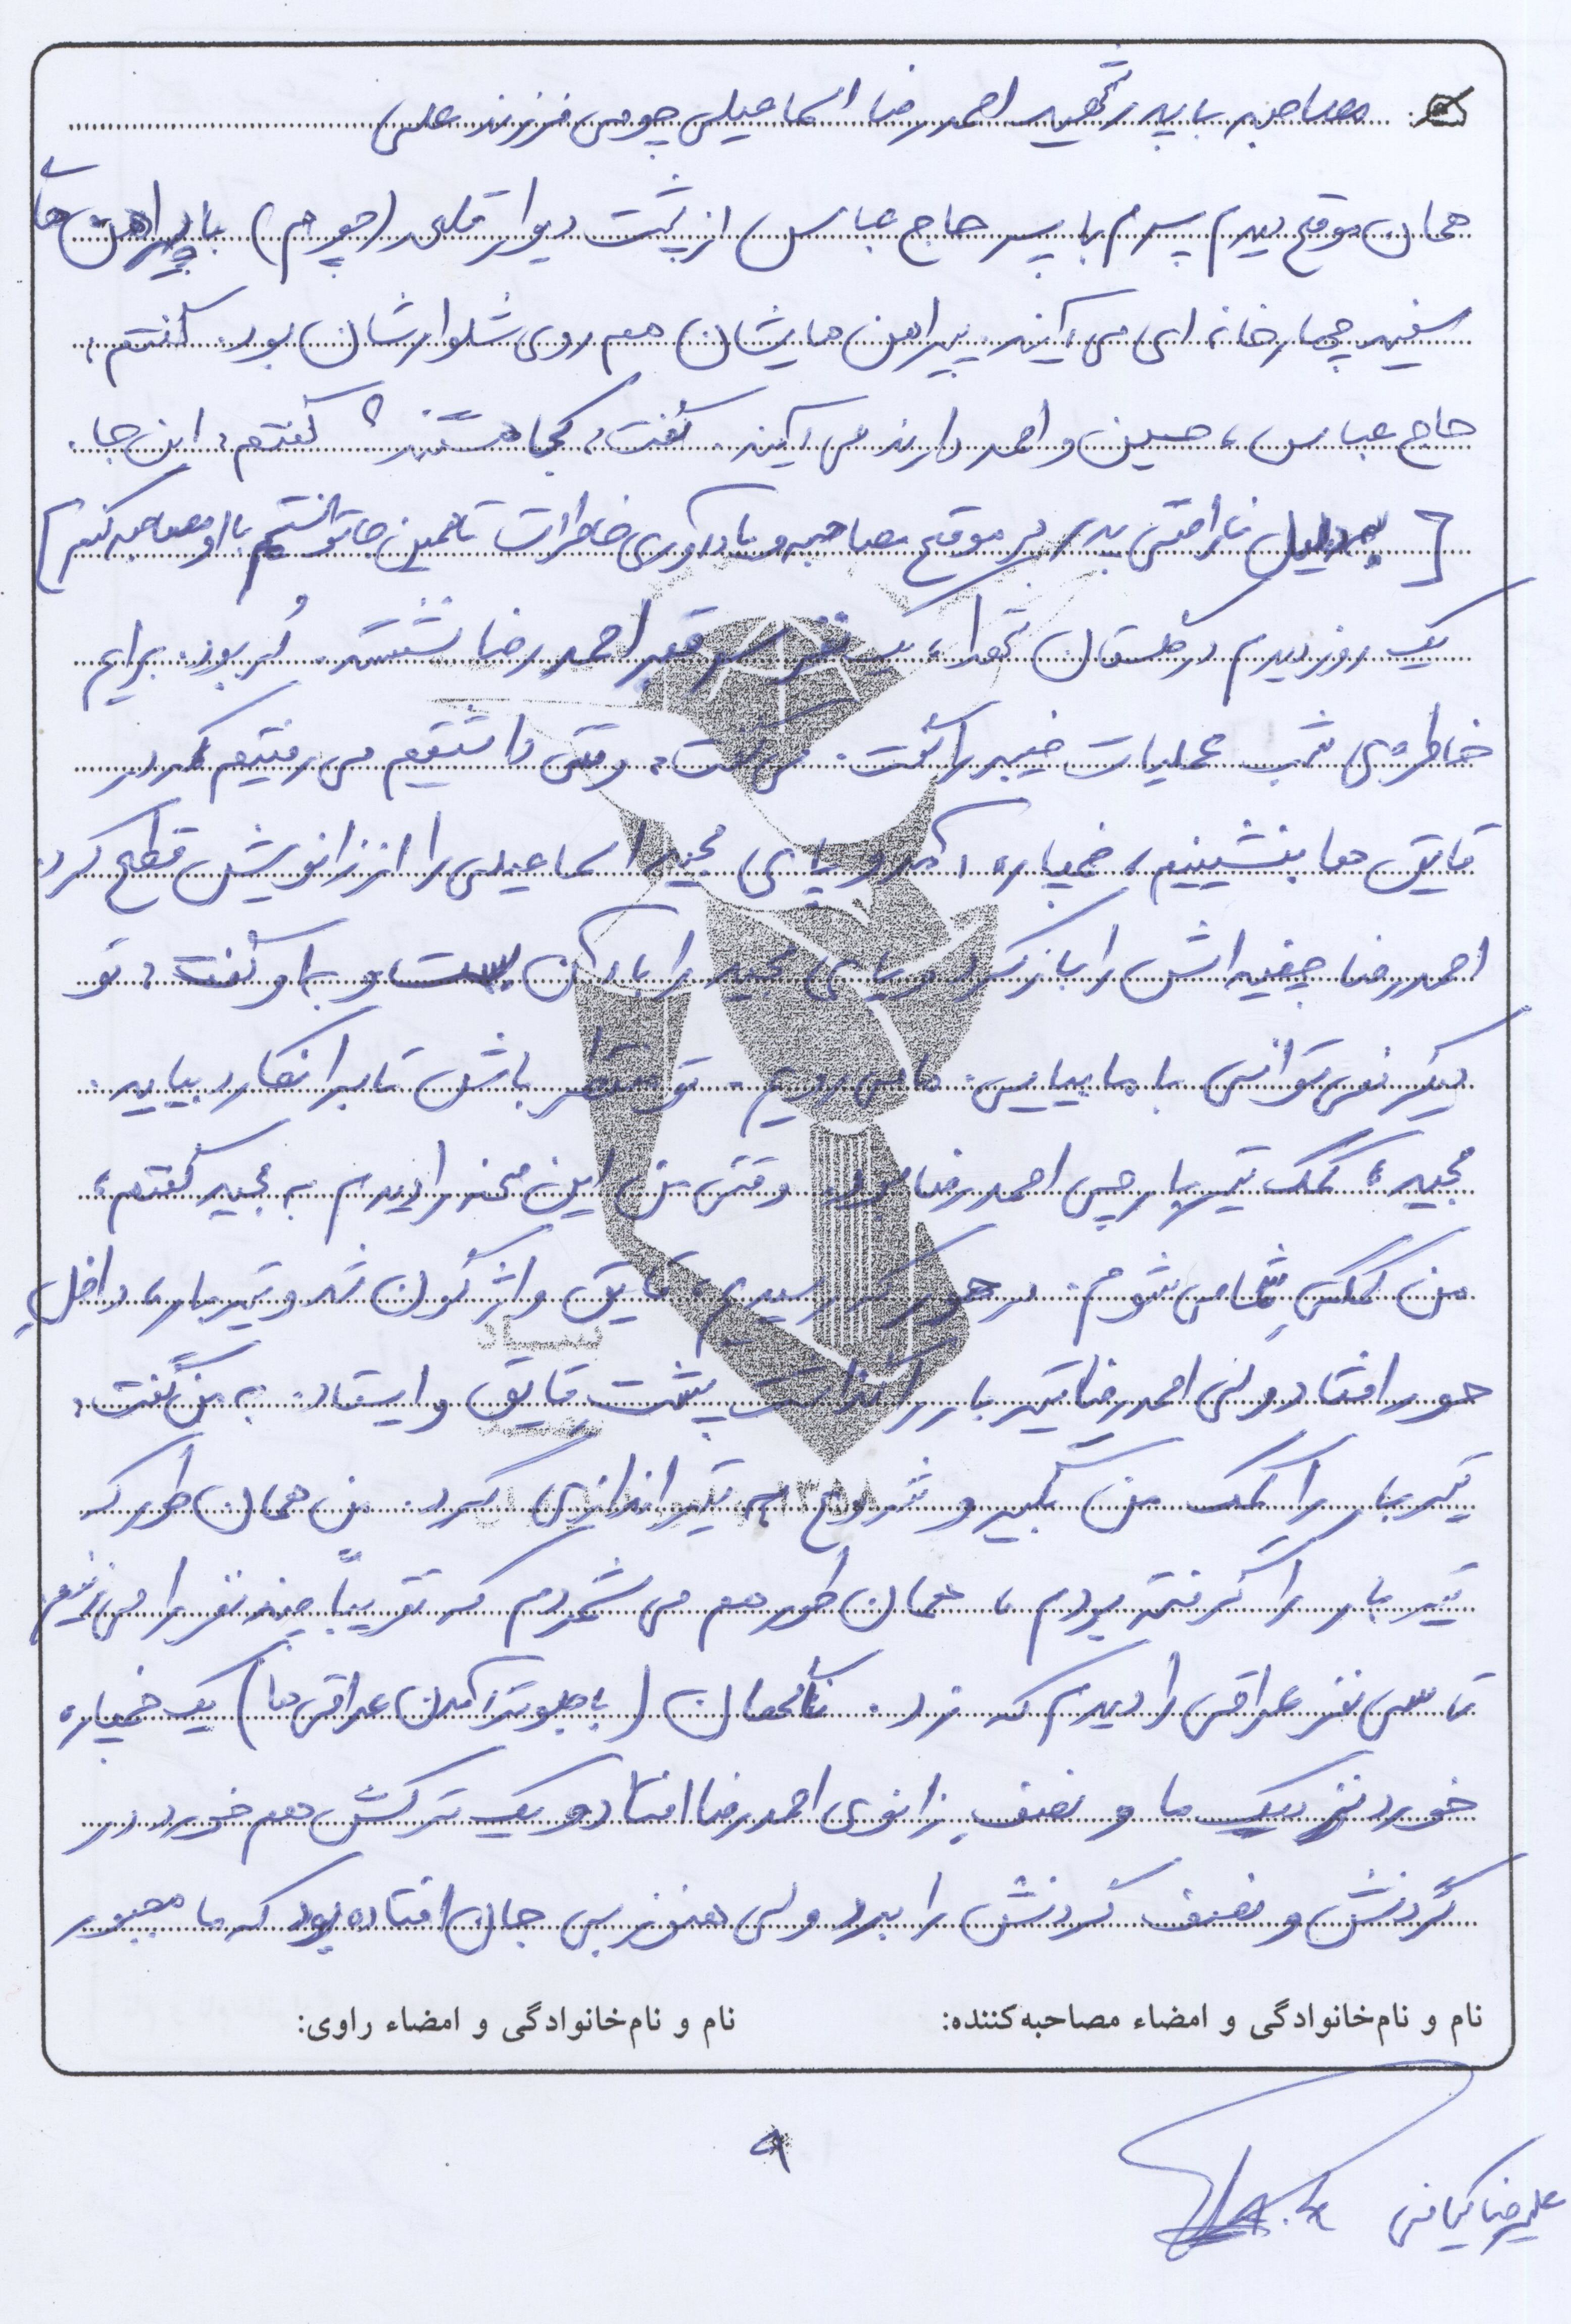 مصاحبه با پدر شهید احمدرضا اسماعیلی چومی فرزند علی
همان موقع دیدم پسرم با پسر حاج عباس از پشت دیوار قلعه (چوم) با پیراهن های
سفید چهارخانه ای می آیند. پیراهن هایشان هم روی شلوارشان بود. گفتم:
حاج عباس، حسین و احمد دارند می آیند. گفت: کجا هستند؟ گفتم: این جا.
[به دلیل ناراحتی پدر در موقع مصاحبه و یادآوری خاطرات تا همین جا توانستیم با او مصاحبه کنیم]
یک روز دیدم در گلستان شهدا، یک نفر سر قبر احمدرضا نشسته بود. برایم
خاطره ی شب عملیات خیبر را گفت. می گفت: وقتی داشتیم می رفتیم که در
قایق ها بنشینیم، خمپاره آمد و پای مجید اسماعیلی را از زانویش قطع کرد.
احمدرضا چفیه اش را باز کرد و پای مجید را با آن بست و به او گفت: تو
دیگر نمی توانی با ما بیایی. ما می رویم. تو منتظر باش تا برانکارد بیاید.
مجید، کمک تیربارچی احمدرضا بود. وقتی من این صحنه را دیدم به مجید گفتم:
من کمکی شما می شوم. در هور که رسیدیم، قایق واژگون شد و تیربار، داخلِ
هور افتاد ولی احمدرضا تیربار را گذاشت پشت قایق و ایستاد. به من گفت:
تیربار را کمک من بگیر و شروع به تیراندازی کرد. من همان طور که
تیربار را گرفته بودم، همان طور هم می شمردم که تقریباً چند نفر را می زنیم.
تا سی نفر عراقی را دیدم که زد. ناگهان (با جلوتر آمدن عراقی ها) یک خمپاره
خورد نزدیک ما و نصف زانوی احمدرضا افتاد و یک ترکش هم خورد در
گردنش و نصف گردنش را برد ولی هنوز بی جان افتاده بود که ما مجبور
نام و نام‌خانوادگی و امضاء مصاحبه‌کننده:
نام و نام‌خانوادگی و امضاء راوی:
۹
علیرضا کیانی